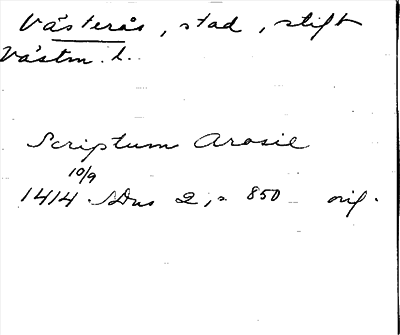 Västerås, stad, stift
Västm. l.
Scriptum Arosie
10/9
1414 SDns 2, s 850 orig.